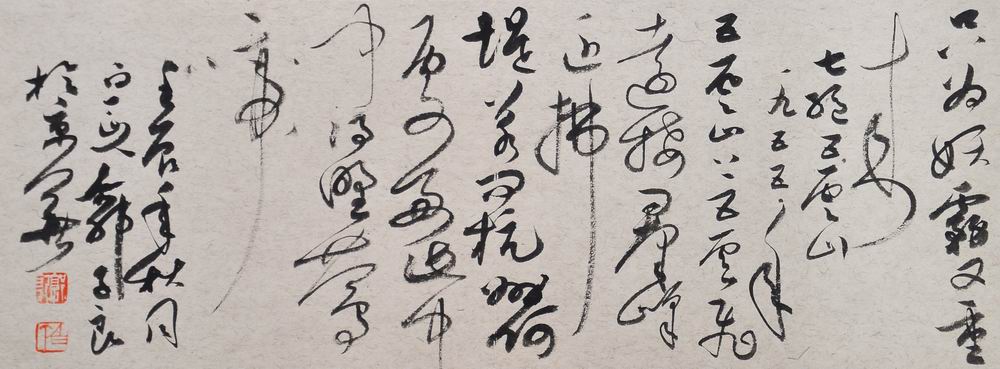 只为妖雾又重
来
七绝五云山
一九五五年
五云山上五云飞
远接群峰
近拂
堤若问杭州何
中
得野莺
啼
壬辰年秋月
韩子良
於京华